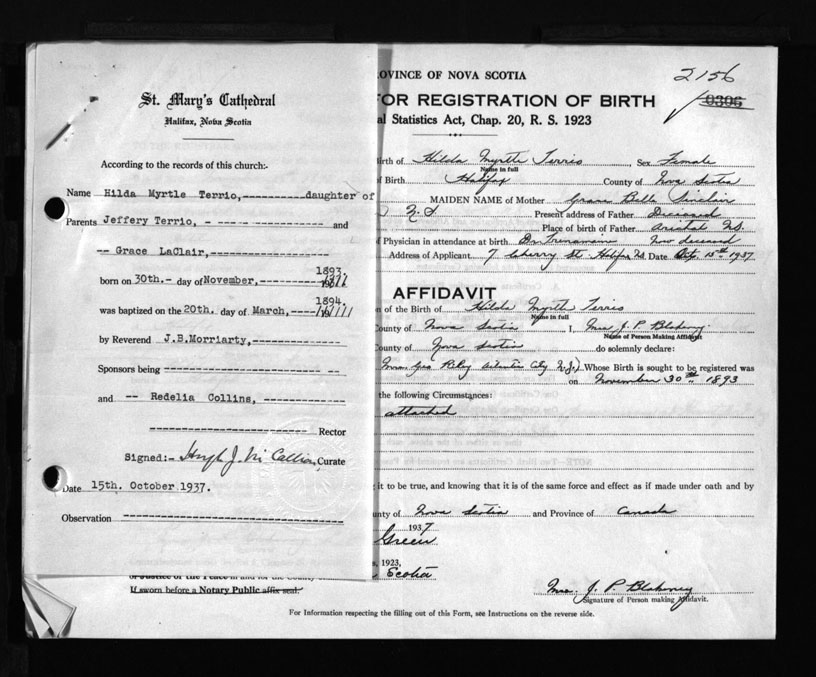 St. Mary's Cathedral
Halifax, Nova Scotia
According to the records of this church:-
Name Hilda Myrtle Terrio,----------daughter of
Parents Jeffery Terrio, - ----------------- and
-- Grace LaClair,--------------------
born on 30th.- day of November,---------- 1893
was baptized on the 20th. day of March,---- 1894.
by Reverend J.B.Morriarty,---------------
Sponsors being
and -- Redelia Collins,--------------
Rector
Signed:- Curate
Date 15th. October 1937.
Observation
OVINCE OF NOVA SCOTIA
2156
FOR REGISTRATION OF BIRTH
0305
al Statistics Act, Chap. 20, R. S. 1923
Birth of Hilda Myrtle Terris Sex Female
Name in full
f Birth Halifax County of Nova Scotia
MAIDEN NAME of Mother Grace Bell Sinclair
N.S Present address of Father Deceased
Place of birth of Father Arichat N.S.
f Physician in attendance at birth Now deceased
Address of Applicant 7 Cherry St. Halifax N.S. Date 15th 1937
AFFIDAVIT
n of the Birth of Hilda Myrtle Terris
Name in full
County of Nova Scotia I, Mrs J. P. Blakeney
Name of Person Making Affidavit
County of Nova Scotia do solemnly declare:
Atlantic City N.J.) Whose Birth is sought to be registered was
on November 30th 1893
the following Circumstances:
attached
it to be true, and knowing that it is of the same force and effect as if made under oath and by
nty of Nova Scotia and Province of Canada
1937
Green
s, 1923,
Scotia
or Justice of the Peace in and for the County
If sworn before a Notary Public affix seal.
Mrs. J. P. Blakeney
Signature of Person making Affidavit.
For Information respecting the filling out of this Form, see Instructions on the reverse side.